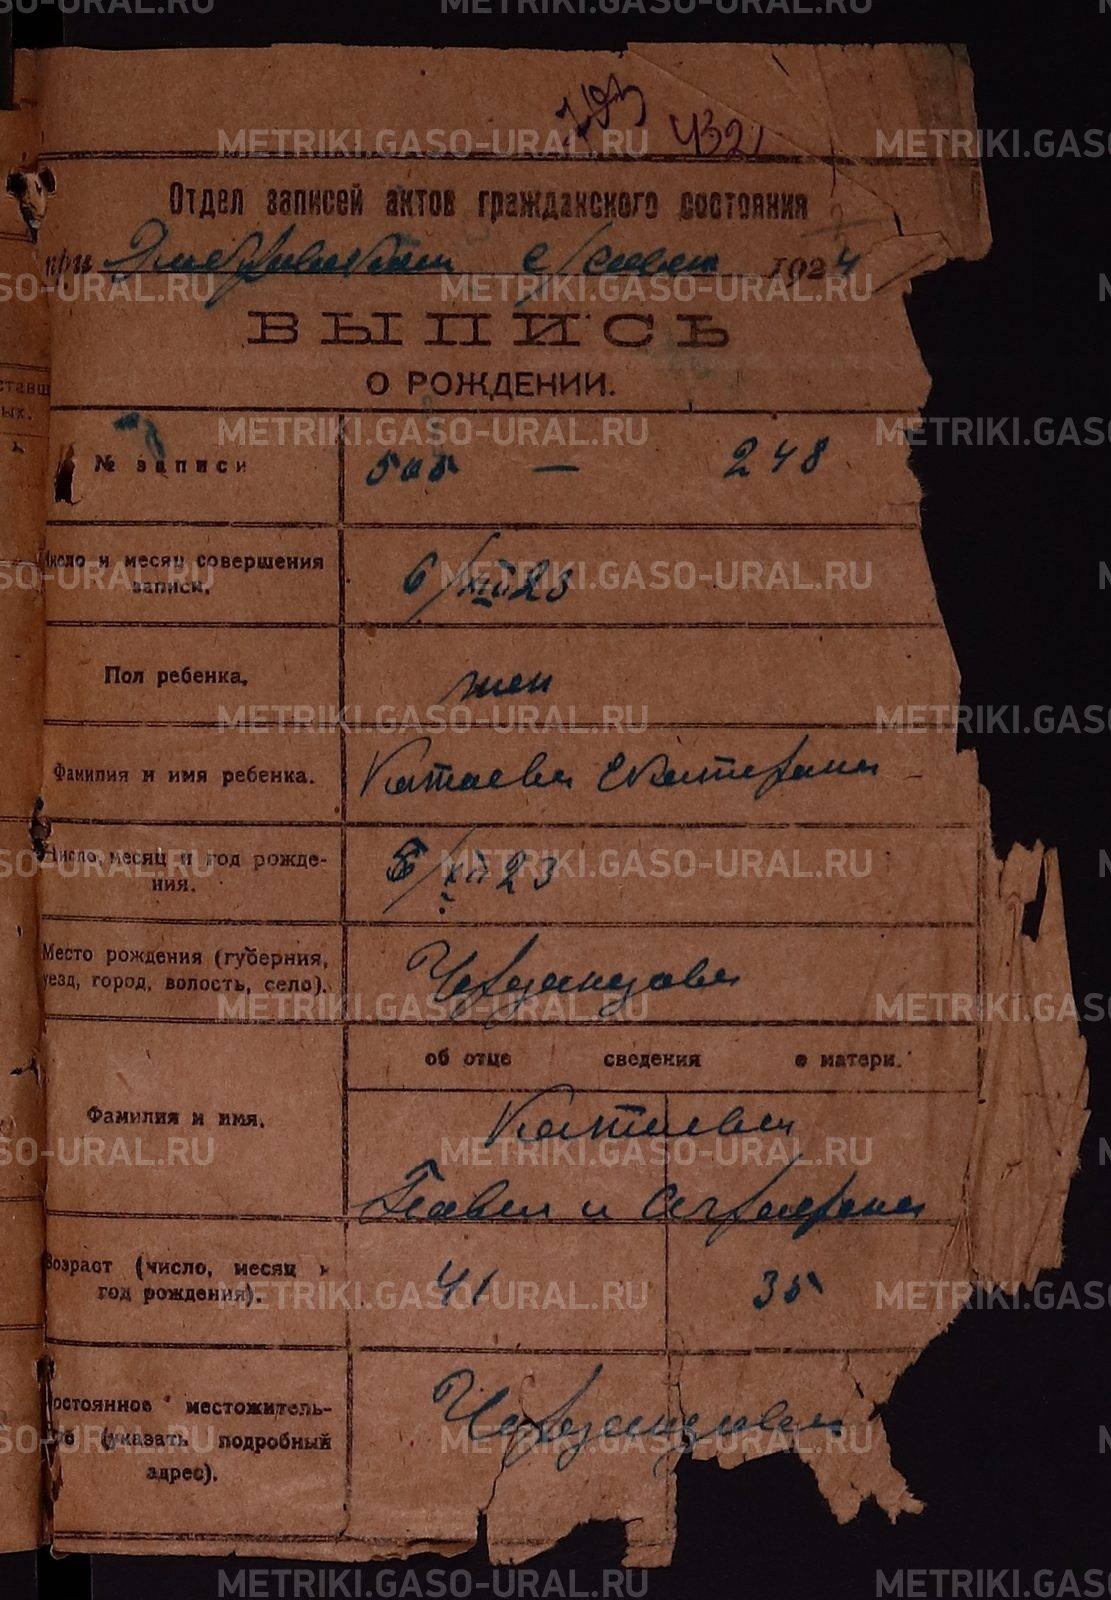 432
Отдел записей актов гражданского состояния
при 1924
ВЫПИСЬ
О РОЖДЕНИИ.
№ записи 505 — 248
Число и месяц совершения записи. 6/XII 23
Пол ребенка. жен
Фамилия и имя ребенка. Катаева Екатерина
Число, месяц и год рожде-
ния. 6/XII 23
Место рождения (губерния,
уезд, город, волость, село). Черданцева
об отце сведения о матери.
Фамилия и имя. Катаевы
Павел и Агрефена
Возраст (число, месяц и
год рождения). 41 35
Постоянное местожитель-
тво (указать подробный
адрес). Черданцева
METRIKI.GASO-URAL.RU